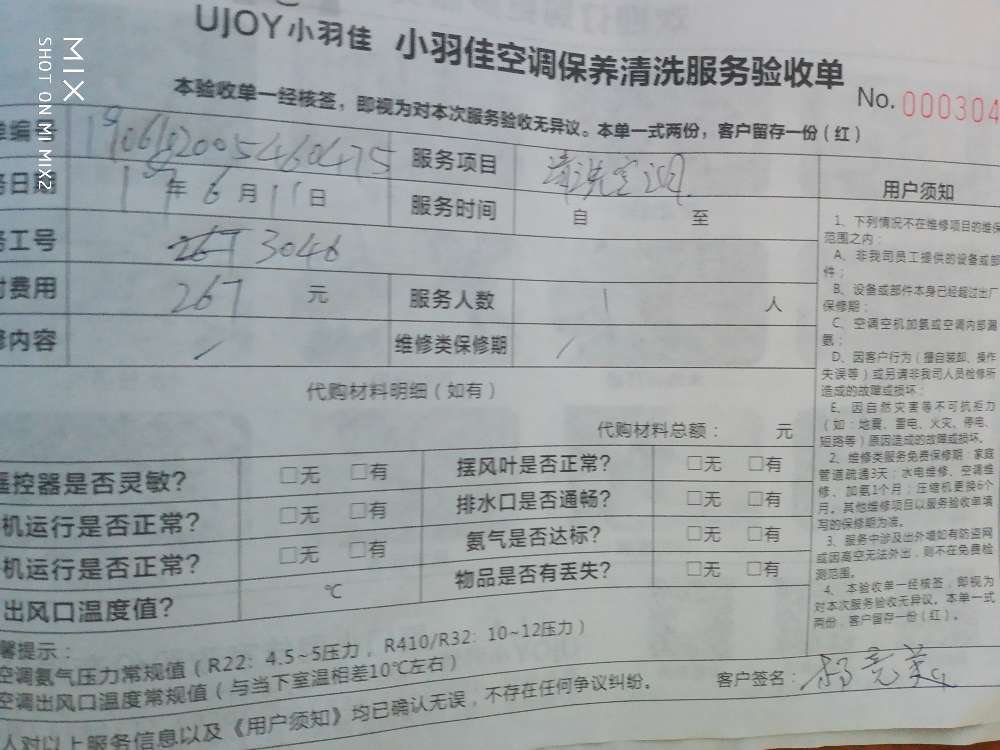 UJOY小羽佳 小羽佳空调保养清洗服务验收单
No. 000304
本验收单一经核签，即视为对本次服务验收无异议。本单一式两份，客户留存一份（红）
单编号 1906102005460475 服务项目 清洗空调
务日期 19年6月11日 服务时间 自 至
务工号 3046
付费用 267 元 服务人数 1 人
修内容 / 维修类保修期 /
代购材料明细（如有）
代购材料总额： 元
遥控器是否灵敏? □无 □有 摆风叶是否正常? □无 □有
机运行是否正常? □无 □有 排水口是否通畅? □无 □有
机运行是否正常? □无 □有 氨气是否达标? □无 □有
出风口温度值? ℃ 物品是否有丢失? □无 □有
馨提示：
空调氨气压力常规值（R22：4.5~5压力，R410/R32：10~12压力）
空调出风口温度常规值（与当下室温相差10℃左右）
人对以上服务信息以及《用户须知》均已确认无误，不存在任何争议纠纷。
客户签名：
用户须知
1、下列情况不在维修项目的维保
范围之内：
A、非我司员工提供的设备或部
件；
B、设备或部件本身已经超过出厂
保修期；
C、空调空机加氨或空调内部漏
氨；
D、因客户行为（擅自装卸、操作
失误等）或另请非我司人员检修所
造成的故障或损坏；
E、因自然灾害等不可抗拒力
（如：地震、雷电、火灾、停电、
短路等）原因造成的故障或损坏。
2、维修类服务免费保修期：家庭
管道疏通3天；水电维修、空调维
修、加氨1个月；压缩机更换6个
月。其他维修项目以服务验收单填
写的保修期为准。
3、服务中涉及出外墙如有防盗网
或因高空无法外出，则不在免费检
测范围。
4、本验收单一经核签，即视为
对本次服务验收无异议。本单一式
两份，客户留存一份（红）。
MIX
SHOT ON MI MIX2